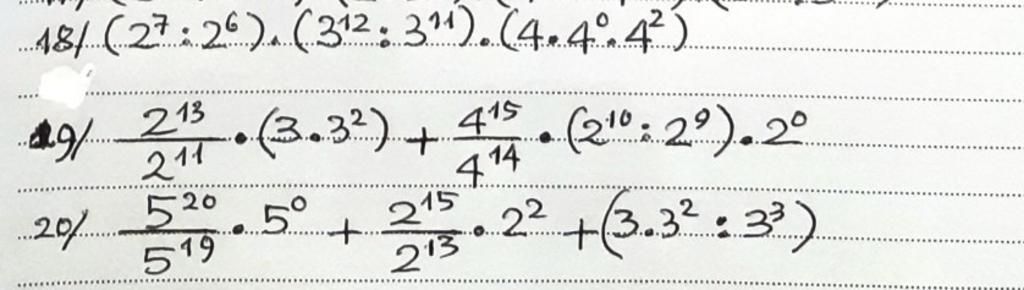 18/ (2⁷ : 2⁶) . (3¹² : 3¹¹) . (4 . 4⁰ . 4²)
19/ 2¹³/2¹¹ . (3 . 3²) + 4¹⁵/4¹⁴ . (2¹⁰ : 2⁹) . 2⁰
20/ 5²⁰/5¹⁹ . 5⁰ + 2¹⁵/2¹³ . 2² + (3 . 3² : 3³)